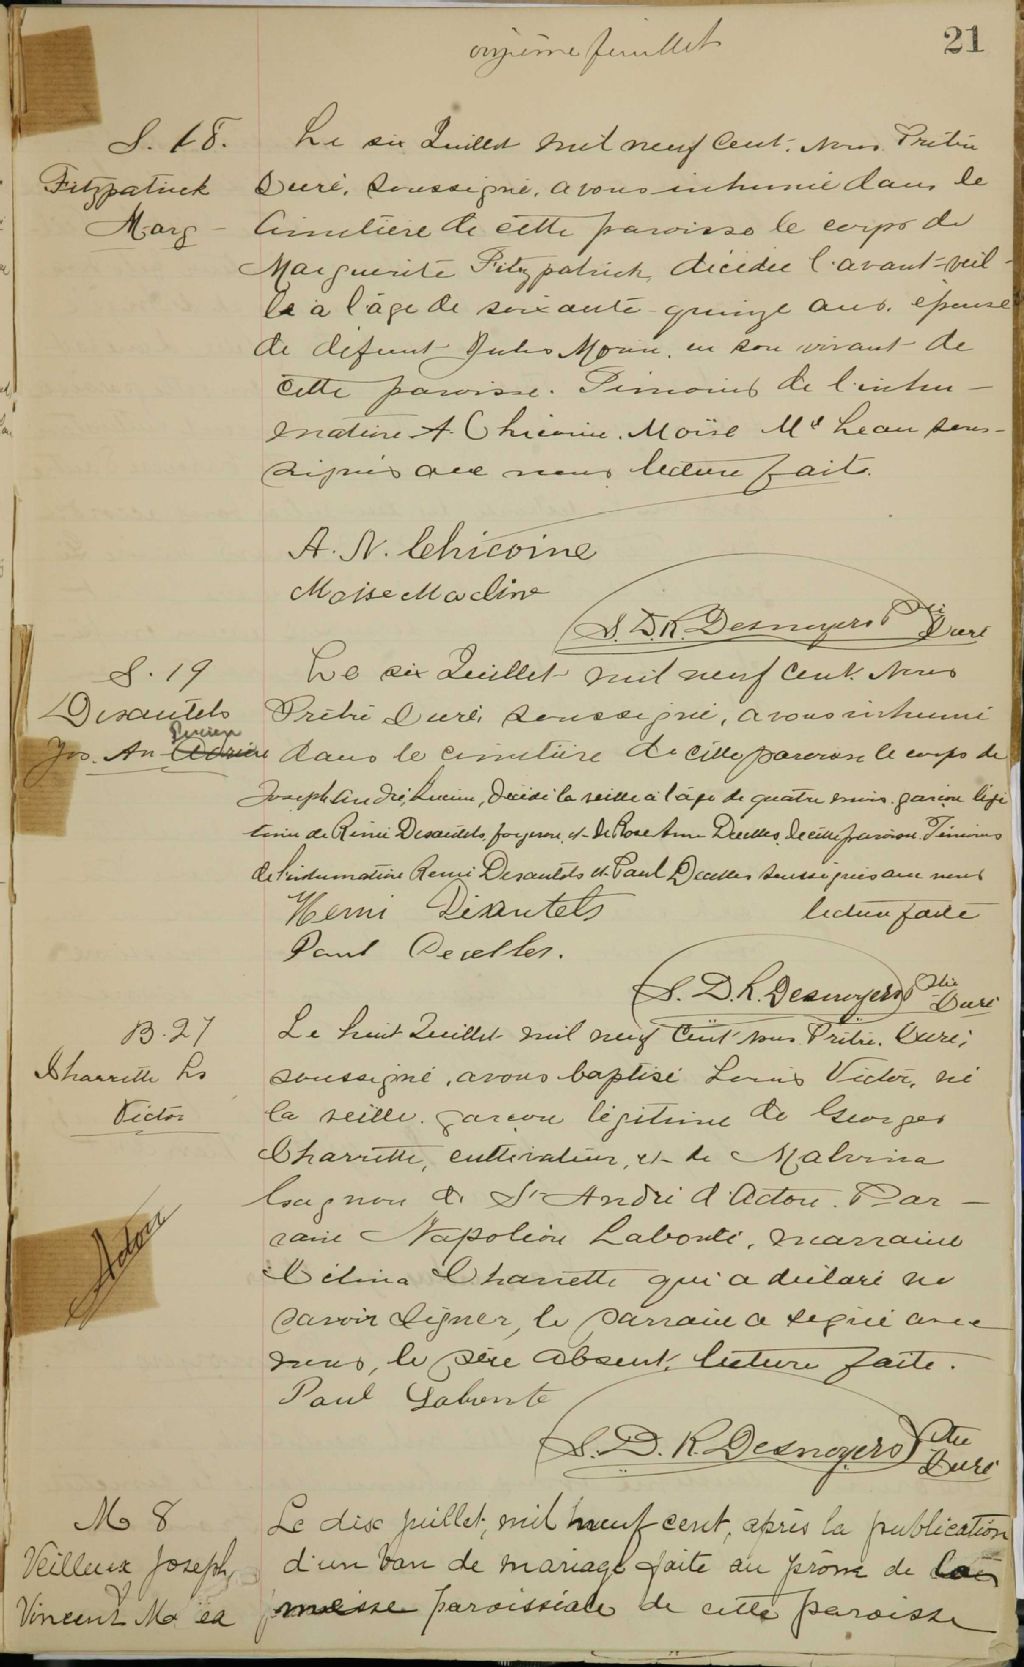 onzième feuillet
21
S. 18.
Fitzpatrick
Marg
Le six Juillet mil neuf cent. Nous Prêtre
Curé, soussigné, avons inhumé dans le
Cimetière de cette paroisse le corps de
Marguerite Fitzpatrick, décédée l'avant-veil-
le a l'âge de soixante-quinze ans, épouse
de défunt Jules Morin, en son vivant de
cette paroisse. Témoins de l'inhu-
mation A Chicoine. Moïse Mc Lean sous-
signés avec nous lecture faite.
A. N. Chicoine
Moise Macline
S. D. R. Desnoyers Ptre
Curé
S. 19
Desautels
Jos. An Adrien Lucien
Le six Juillet mil neuf cent. Nous
Prêtre Curé soussigné, avons inhumé
dans le cimetière de cette paroisse le corps de
Joseph André, Lucien, décédé la veille à l'âge de quatre mois, garçon légi
time de Rémi Desautels, forgeron, et de Rose Anna Decelles, de cette paroisse. Témoins
de l'inhumation Remi Desautels et Paul Decelles soussignés avec nous
lecture faite
Remi Desautels
Paul Decelles.
S. D. R. Desnoyers Ptre
Curé
B. 27
Charrette Ls
Victor
Acton
Le huit Juillet mil neuf cent nous Prêtre, Curé,
soussigné, avons baptisé Louis Victor, né
la veille, garçon légitime de Georges
Charrette, cultivateur, et de Malvina
Gagnon de St André d'Acton. Par-
rain Napoléon Labonté, marraine
Célina Charrette qui a déclaré ne
savoir signer, le parrain a signé avec
nous, le père absent, lecture faite.
Paul Labonte
S. D. R. Desnoyers Ptre
Curé
M 8
Veilleux Joseph
Vincent Ma
Le dix juillet, mil neuf cent, après la publication
d'un ban de mariage faite au prône de la
messe paroissiale de cette paroisse